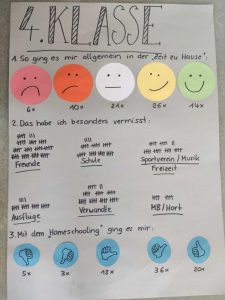 4. KLASSE
1. So ging es mir allgemein in der „Zeit zu Hause":
6x 10x 21x 26x 14x
2. Das habe ich besonders vermisst:
Freunde Schule Sportverein/Musik
Freizeit
Ausflüge Verwandte MB/Hort
3. Mit dem „Homeschooling" ging es mir:
5x 3x 13x 36x 20x